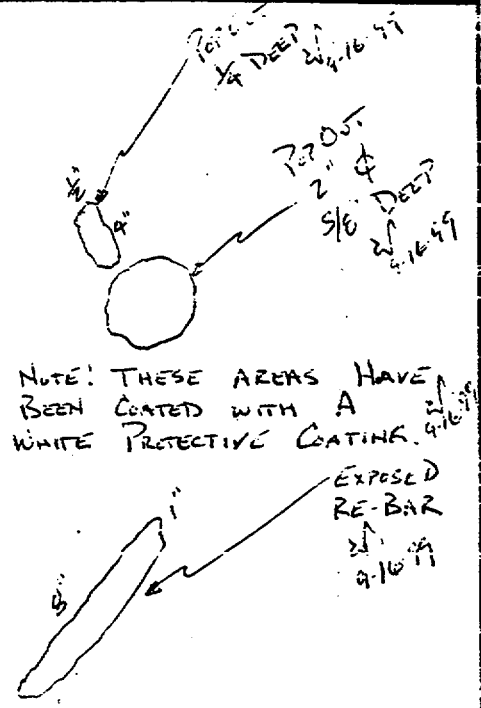 POP OUT
1/4 DEEP 9-16-99
1/2"
4"
POP OUT
2" ¢
5/8 DEEP
9-16-99
NOTE! THESE AREAS HAVE
BEEN COATED WITH A
WHITE PROTECTIVE COATING. 9-16-99
EXPOSED
RE-BAR
9-16-99
1"
8"